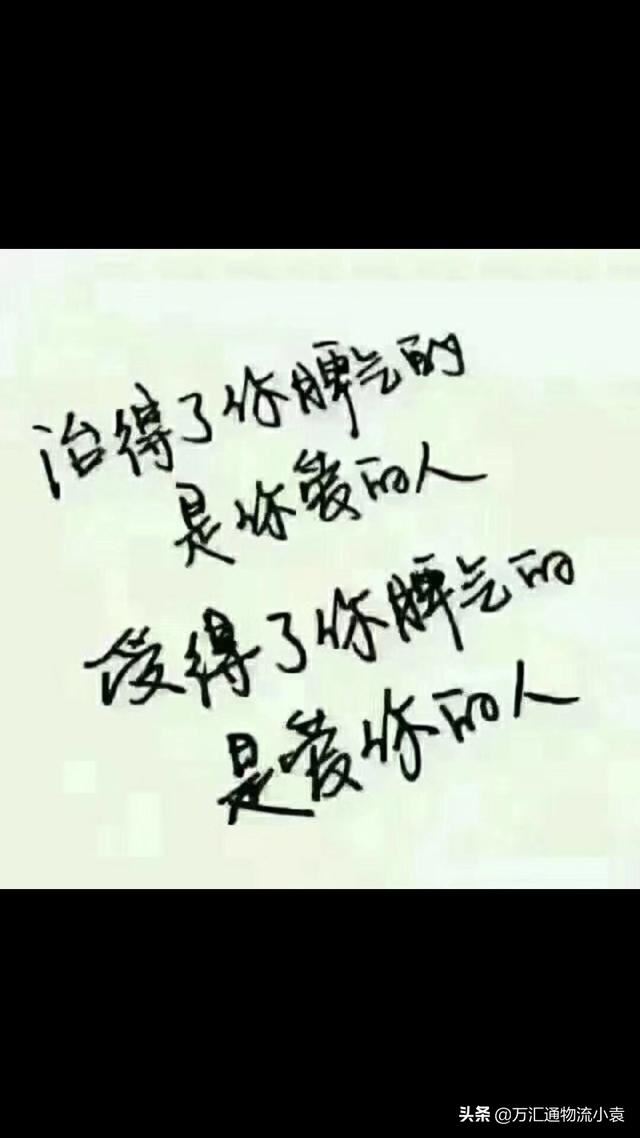 治得了你脾气的
是你爱的人
受得了你脾气的
是爱你的人
头条 @万汇通物流小袁